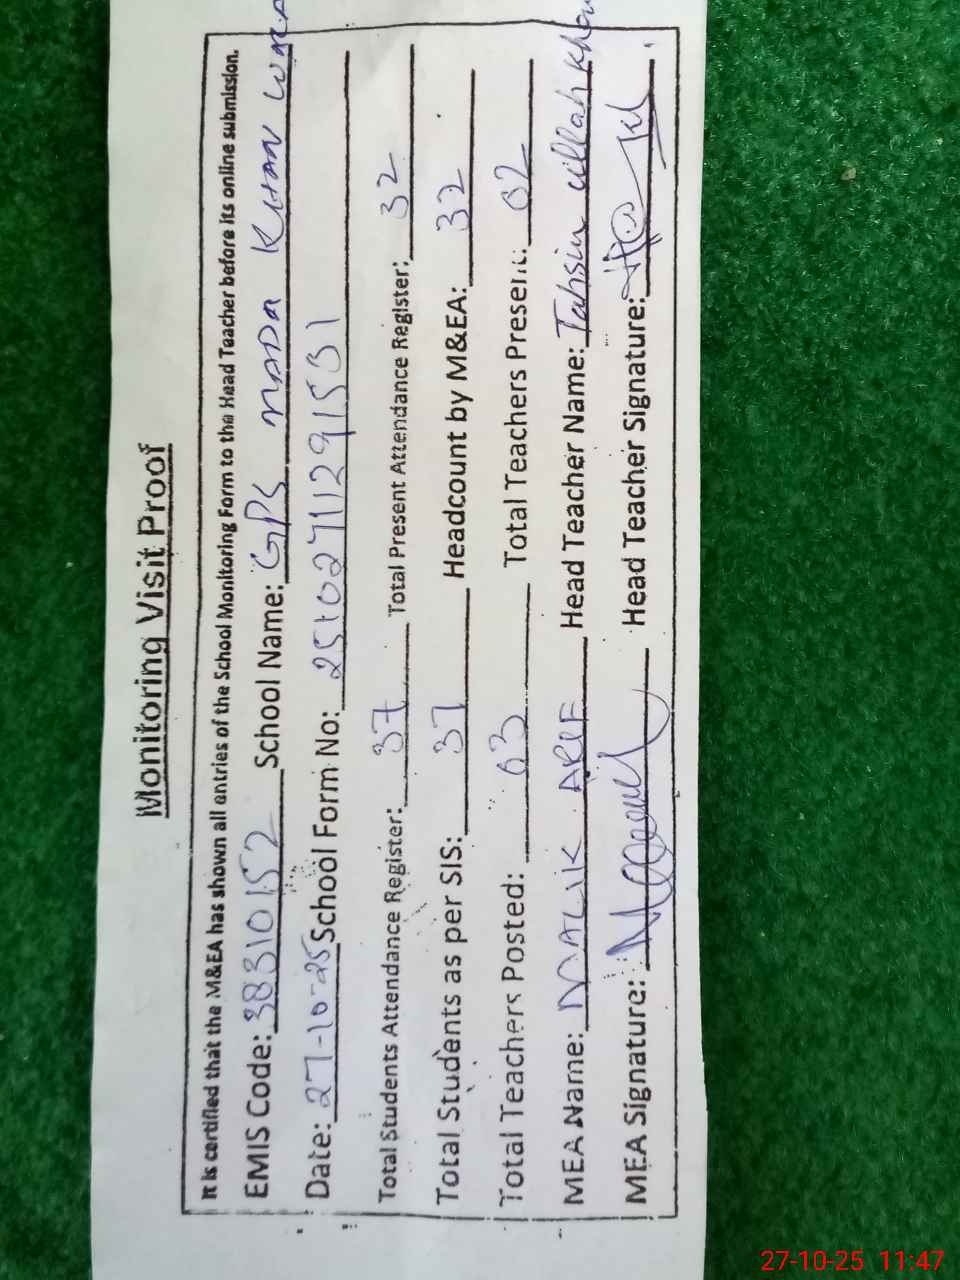 Monitoring Visit Proof
It is certified that the M&EA has shown all entries of the School Monitoring Form to the Head Teacher before its online submission.
EMIS Code: 38310152 School Name: GPS NADA KHAN
Date: 27-10-25 School Form No:
Total Students Attendance Register: 37 Total Present Attendance Register: 32
Total Students as per SIS: 37 Headcount by M&EA: 32
Total Teachers Posted: 03 Total Teachers Present: 02
MEA Name: MALIK ARIF Head Teacher Name: Tahsin ullah Khan
MEA Signature: Head Teacher Signature:
27-10-25 11:47